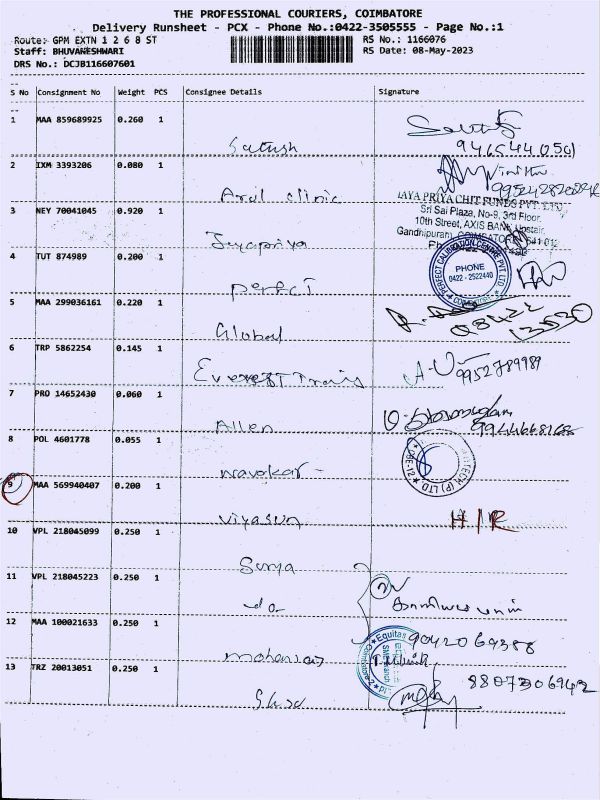 THE PROFESSIONAL COURIERS, COIMBATORE
Delivery Runsheet - PCX - Phone No.:0422-3505555 - Page No.:1
Route: GPM EXTN 1 2 6 8 ST
RS No.: 1166076
Staff: BHUVANESHWARI
RS Date: 08-May-2023
DRS No.: DCJB116607601
S No Consignment No Weight PCS Consignee Details Signature
1 MAA 859689925 0.260 1
Satush
2 IXM 3393206 0.080 1
Arul clinic
3 NEY 70041045 0.920 1
JAYA PRIYA CHIT FUNDS PVT. LTD
Sri Sai Plaza, No-9, 3rd Floor.
10th Street, AXIS BANK Upstair,
Gandhipuram, COIMBATORE
Jeyapriya
4 TUT 874989 0.200 1
PERFECT CALIBRATION CENTRE PVT LTD
PHONE
0422 - 2522440
COIMBATORE
perfect
5 MAA 299036161 0.220 1
Global
6 TRP 5862254 0.145 1
9952789989
Everest Trans
7 PRO 14652430 0.060 1
9944668168
Allen
8 POL 4601778 0.055 1
CBE-12
TECH (P) LTD
navakar -
9 MAA 569940407 0.200 1
viyasun
H/R
10 VPL 218045099 0.250 1
Surya
11 VPL 218045223 0.250 1
do
12 MAA 100021633 0.250 1
Equitas
9042069388
13 TRZ 20013051 0.250 1
8807306942